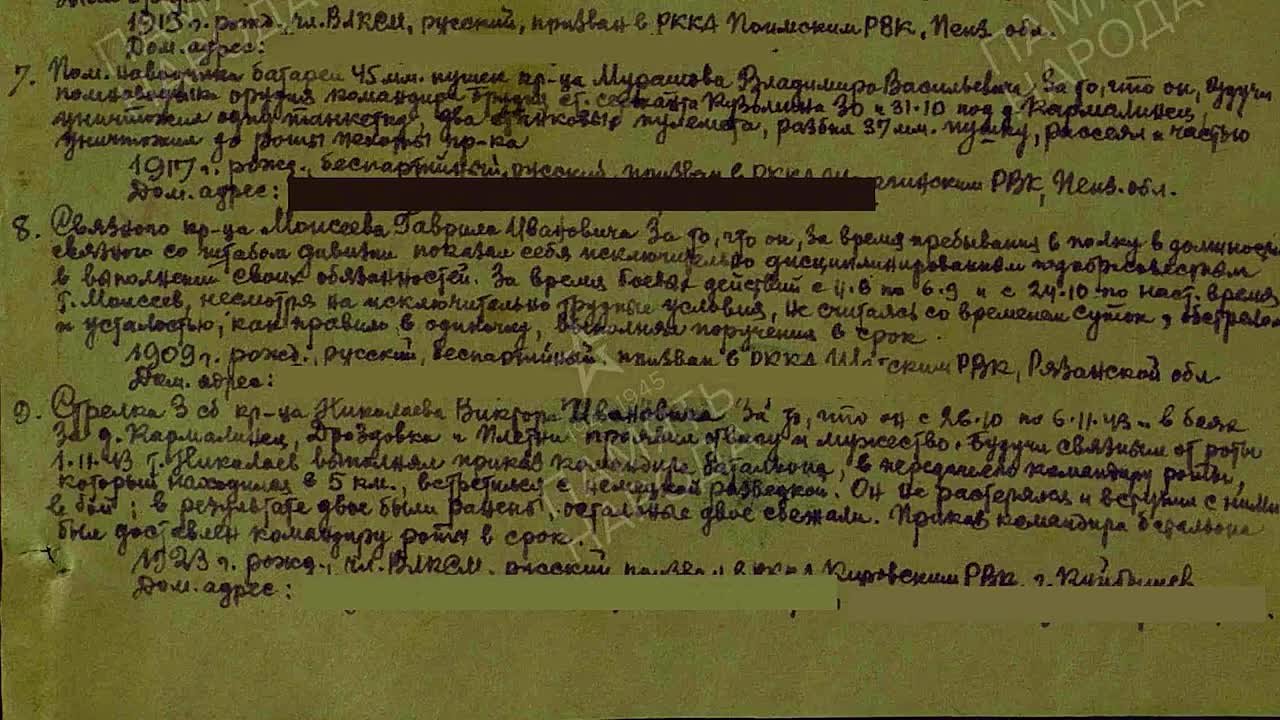 1913 г. рожд., чл. ВЛКСМ, русский, призван в РККА Поимским РВК, Пенз. обл.
Дом. адрес:
7. Пом. наводчика батареи 45 мм. пушек кр-ца Мурашова Владимира Васильевича За то, что он, будучи
помнаводчика орудия командира орудия ст. сержанта Кузьмина 30 и 31.10 под д. Кармалинец,
уничтожил одну танкетку, два станковых пулемета, разбил 37 мм. пушку, рассеял и частью
уничтожил до роты пехоты пр-ка
1917 г. рожд., беспартийный, русский, призван в РККА РВК, Пенз. обл.
Дом. адрес:
8. Связного кр-ца Моисеева Гаврила Ивановича За то, что он, за время пребывания в полку в должности
связного со штабом дивизии показал себя исключительно дисциплинированным и добросовестным
в выполнении своих обязанностей. За время боевых действий с 4.8 по 6.9 и с 24.10 по наст. время
т. Моисеев, несмотря на исключительно трудные условия, не считаясь со временем суток, обстрелом
и усталостью, как правило в одиночку, выполнял поручения в срок.
1909 г. рожд., русский, беспартийный, призван в РККА РВК, Рязанской обл.
Дом. адрес:
9. Стрелка 3 сб кр-ца Николаева Виктора Ивановича За то, что он с 26.10 по 6.11.43 г. в боях
за д. Кармалинец, Дроздовка и Плетни проявил отвагу и мужество. Будучи связным от роты
1.11.43 т. Николаев выполнял приказ командира батальона, в передаче его командиру роты,
который находился в 5 км., встретился с немецкой разведкой. Он не растерялся и вступил с ними
в бой; в результате двое были ранены, остальные двое сбежали. Приказ командира батальона
был доставлен командиру роты в срок.
1923 г. рожд., чл. ВЛКСМ, русский, призван в РККА Кировским РВК, г. Куйбышев
Дом. адрес:
ПАМЯТЬ
НАРОДА
1945